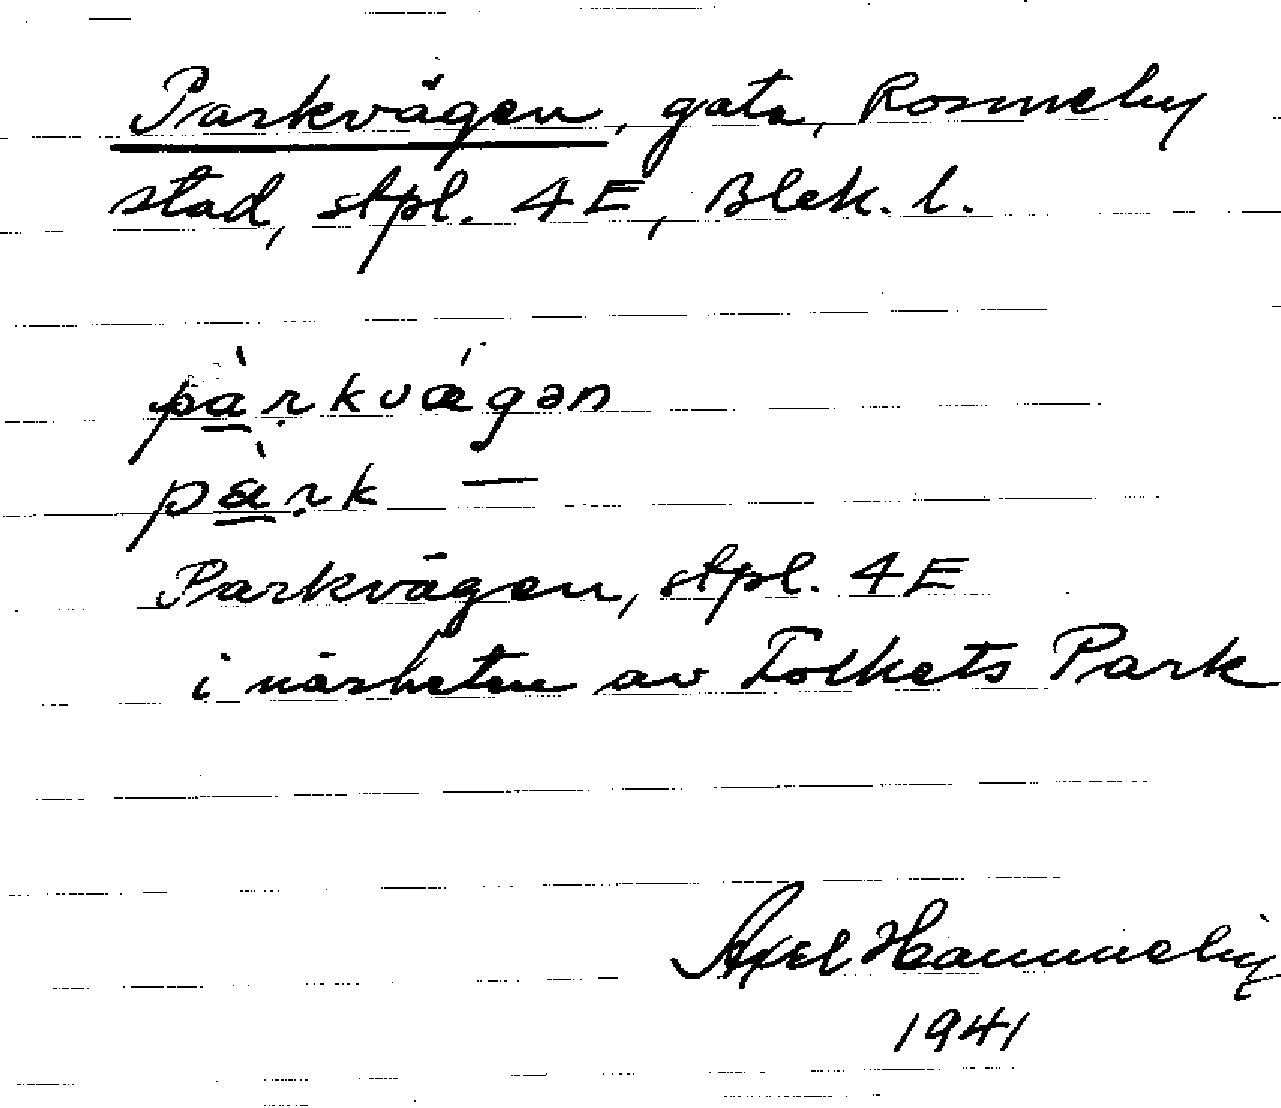 Parkvägen, gata, Ronneby
stad, stpl. 4 E, Blek. l.
pàrkvǽgən
pàrk —
Parkvägen, stpl. 4 E
i närheten av Folkets Park
Axel Hammelin
1941